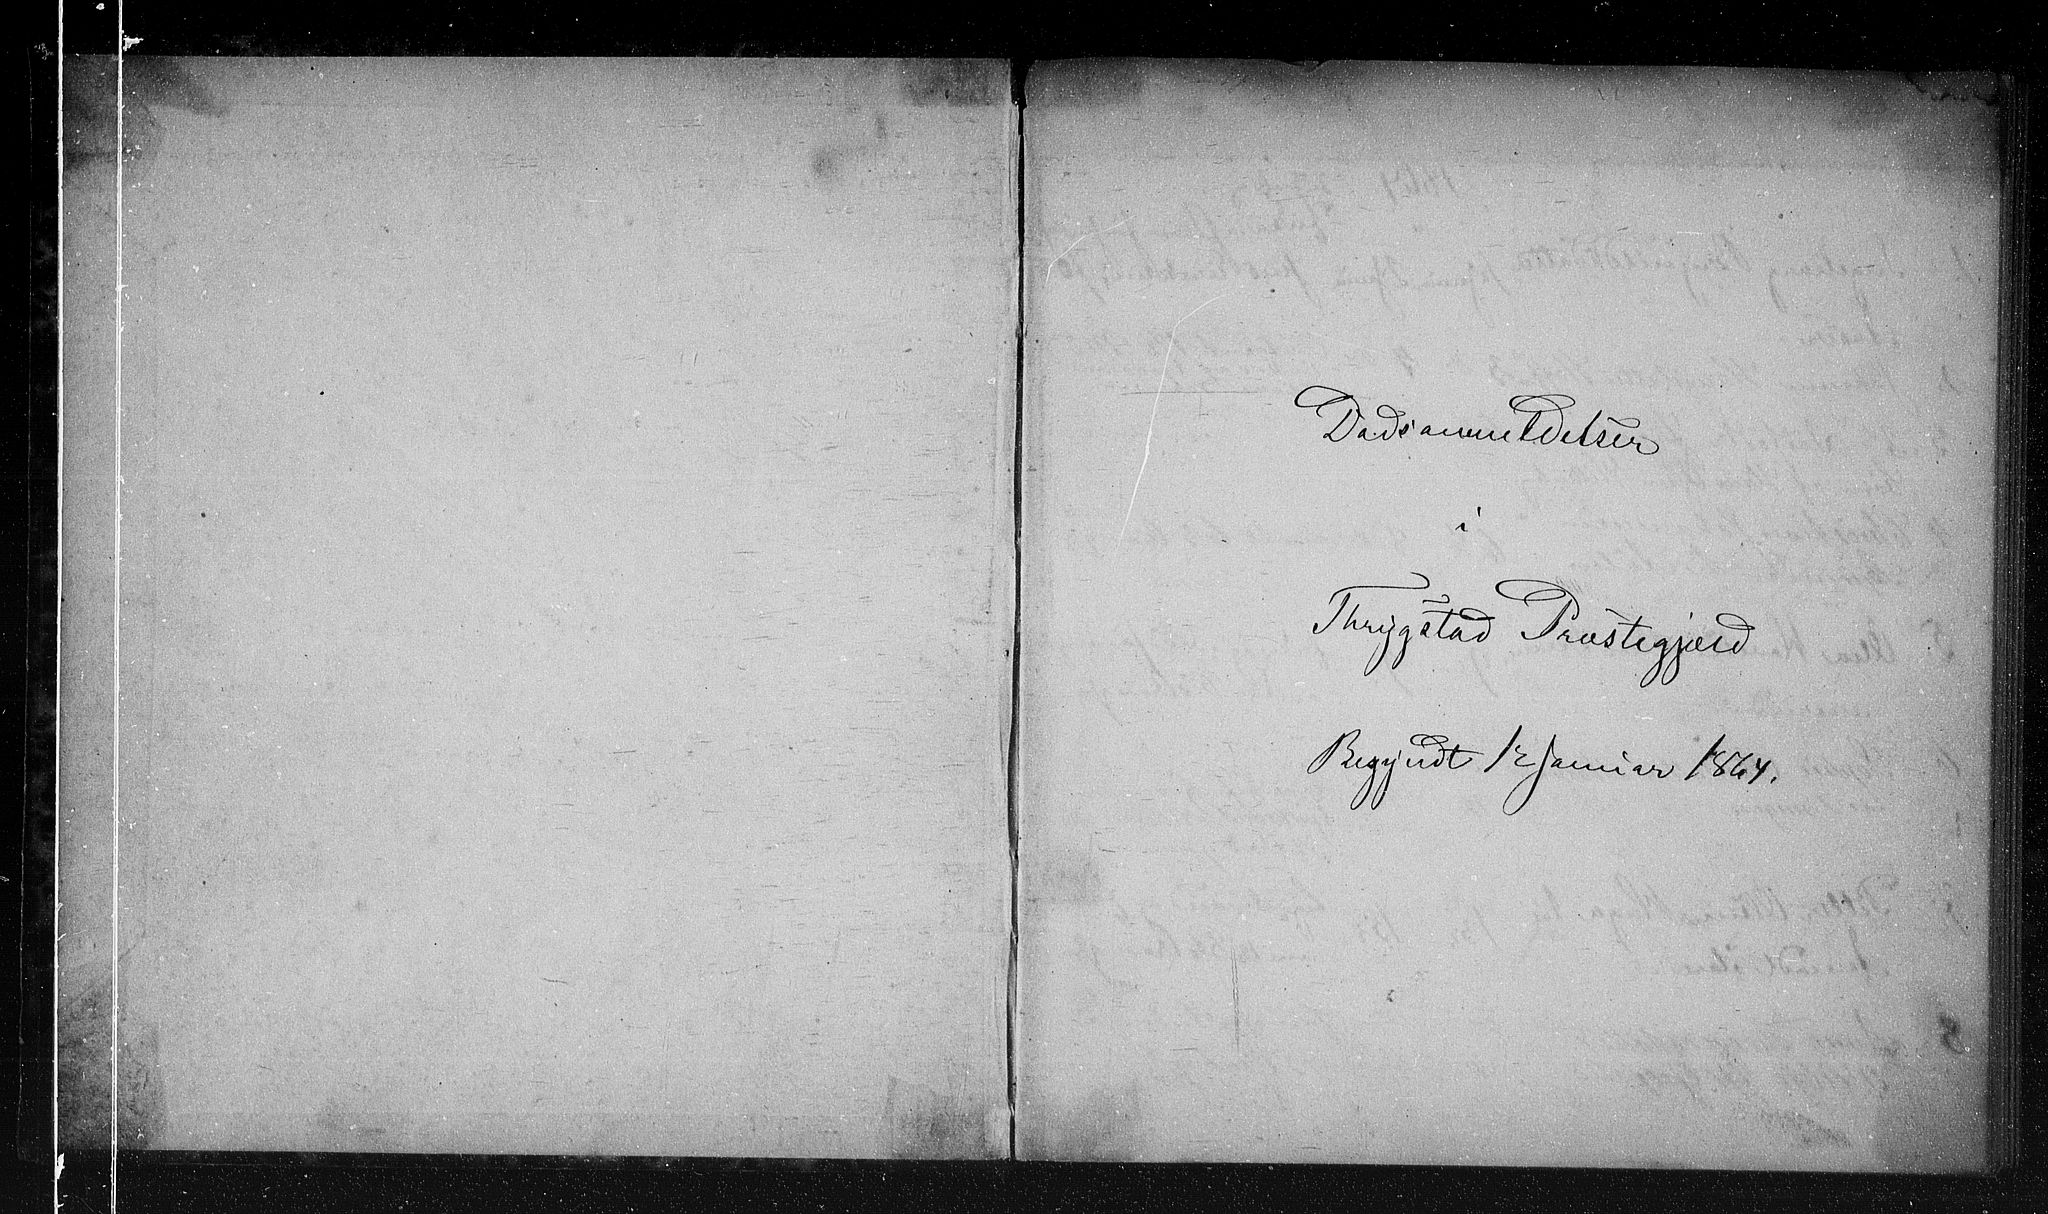 Dødsanmeldelser
i
Thrygstad Præstegjæld
Begyndt 12 Januar 1864.